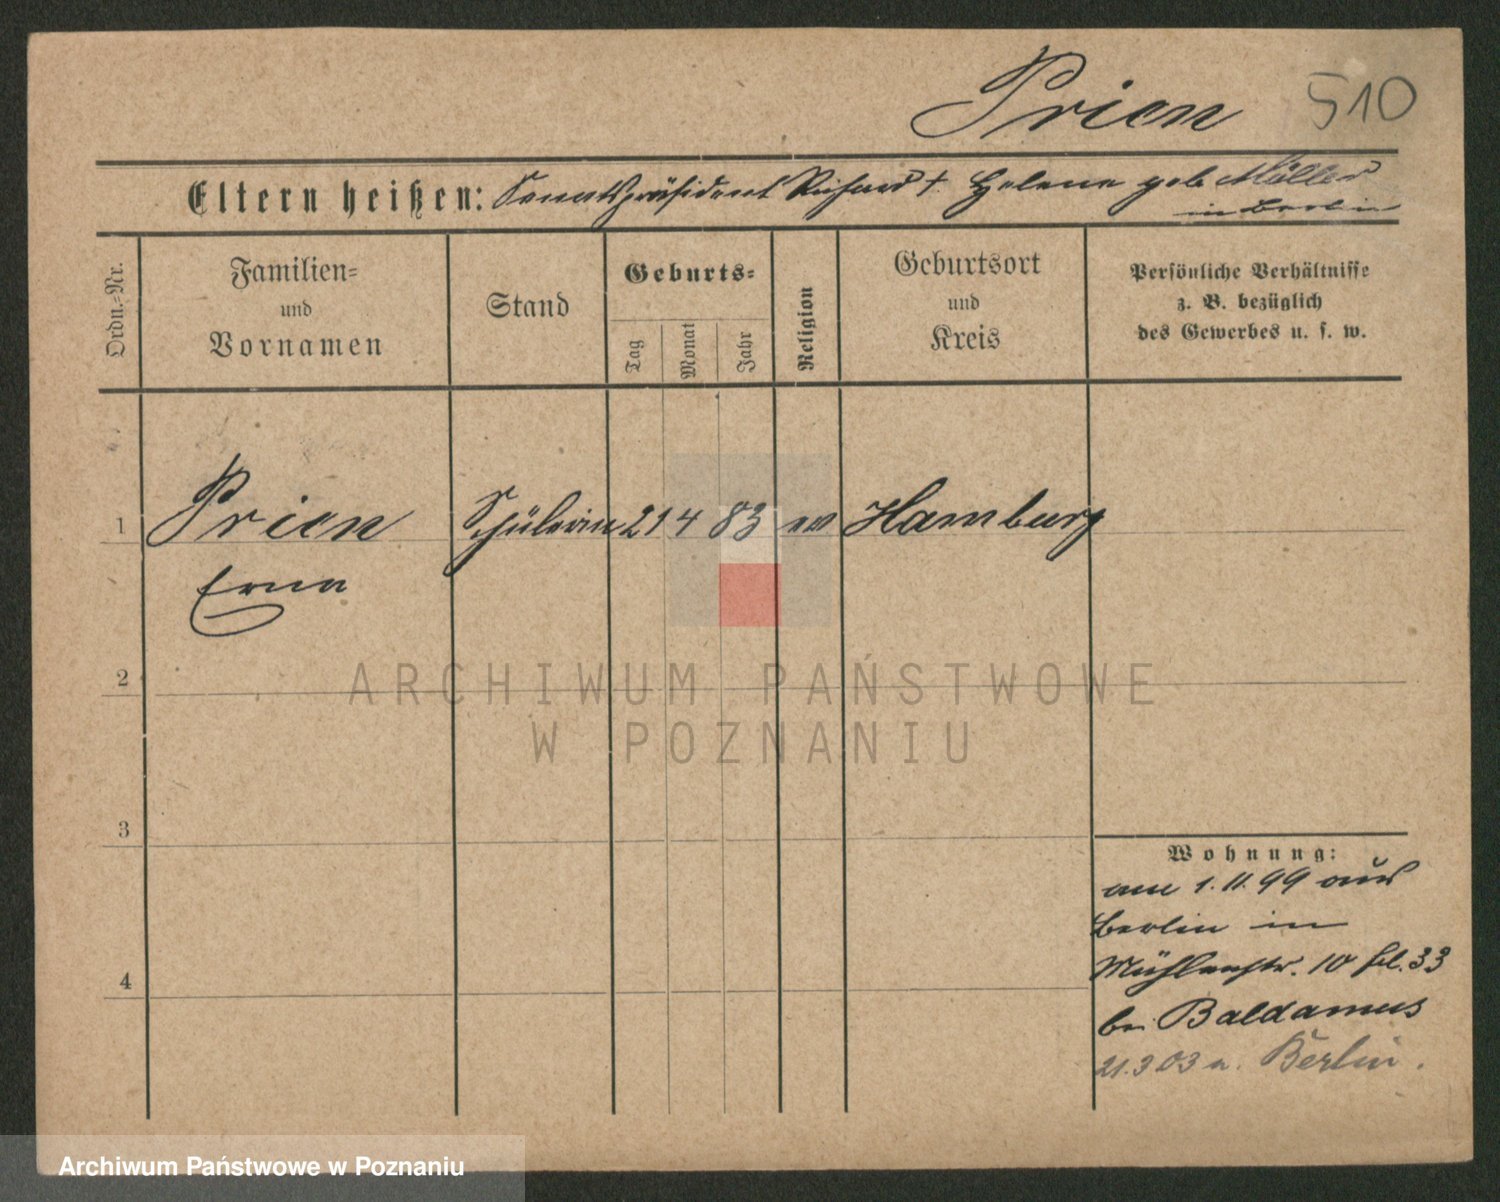 Prien 510
Eltern heißen: Senatspräsident Richard † Helene geb Möller
in Berlin
Ordn.-Nr.
Familien-
und
Vornamen
Stand
Geburts-
Tag
Monat
Jahr
Religion
Geburtsort
und
Kreis
Persönliche Verhältnisse
z. B. bezüglich
des Gewerbes u. s. w.
1 Prien Schülerin 21 4 83 ev Hamburg
Erna
2
ARCHIWUM PAŃSTWOWE
W POZNANIU
3
Wohnung:
am 1.11.99 aus
Berlin in
4
Mühlenstr. 10 bei
Baldamus
21.3 03 n. Berlin.
Archiwum Państwowe w Poznaniu